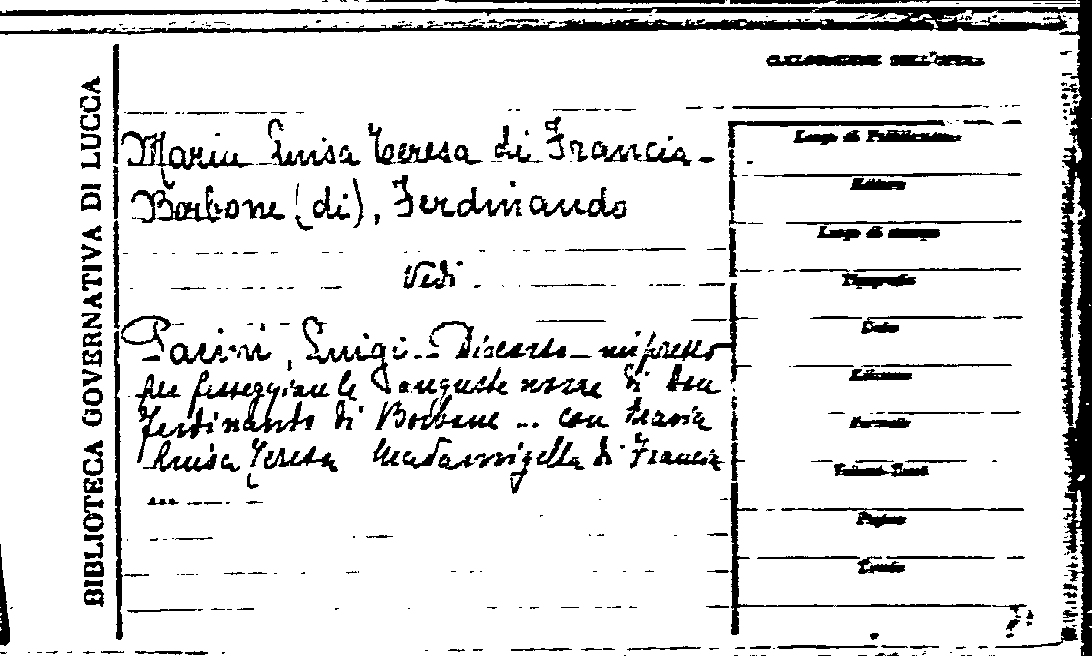 BIBLIOTECA GOVERNATIVA DI LUCCA
Maria Luisa Teresa di Francia -
Borbone (di), Ferdinando
Vedi
Pacini, Luigi - Discorso impresso
per festeggiare le auguste nozze di Don
Ferdinando di Borbone ... con Maria
Luisa Teresa Madamigella di Francia
...
Luogo di Pubblicazione
Editore
Luogo di stampa
Tipografia
Data
Edizione
Formato
Pagine